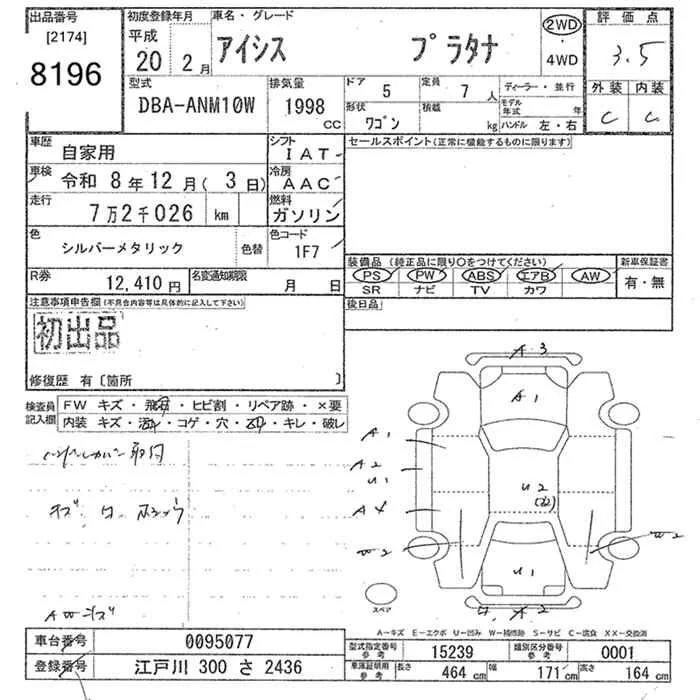 出品番号 初度登録年月 車名・グレード 2WD 評価点
[2174] 平成 アイシス プラタナ 3.5
8196 20 2月 4WD
型式 排気量 ドア 定員 ディーラー・並行 外装 内装
DBA-ANM10W 1998 CC 5 7人 モデル年式 年 C C
形状 ワゴン 積載 kg ハンドル 左・右
車歴 自家用 シフト IAT セールスポイント(正常に機能するものに限ります)
車検 令和 8年12月(3日) 冷房 AAC
走行 7万2千026 km 燃料 ガソリン
色 シルバーメタリック 色替 色コード 1F7
装備品(純正品に限り○をつけてください) 新車保証書
PS PW ABS エアB AW 有・無
SR ナビ TV カワ
R券 12,410円 名変通知期限 月 日
後日品
注意事項申告欄(不具合内容等は具体的に記入して下さい)
初出品
修復歴 有〔箇所 〕
検査員記入欄 FW キズ・飛石・ヒビ割・リペア跡・×要
内装 キズ・汚れ・コゲ・穴・凹・キレ・破レ
A 3
A1
A1
A2
U1
U2
A4
W2
W2
U1
A2
スペア
AWキズ
A-キズ E-エクボ U-凹み W-補修跡 S-サビ C-腐食 XX-交換済
車台番号 0095077
型式指定番号 参考 15239 類別区分番号 参考 0001
登録番号 江戸川 300 さ 2436
車庫証明用 参考 長さ 464cm 幅 171cm 高さ 164cm